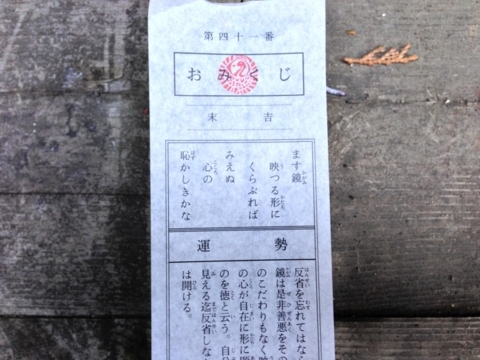 第四十一番
おみくじ
末吉
ます鏡
映つる形に
くらぶれば
みえぬ
心の
恥かしきかな
運勢
反省を忘れてはなら
鏡は是非善悪をその
のこだわりもなく映
の心が自在に形に
のを徳と云う。自分
見える迄反省しな
は開ける。